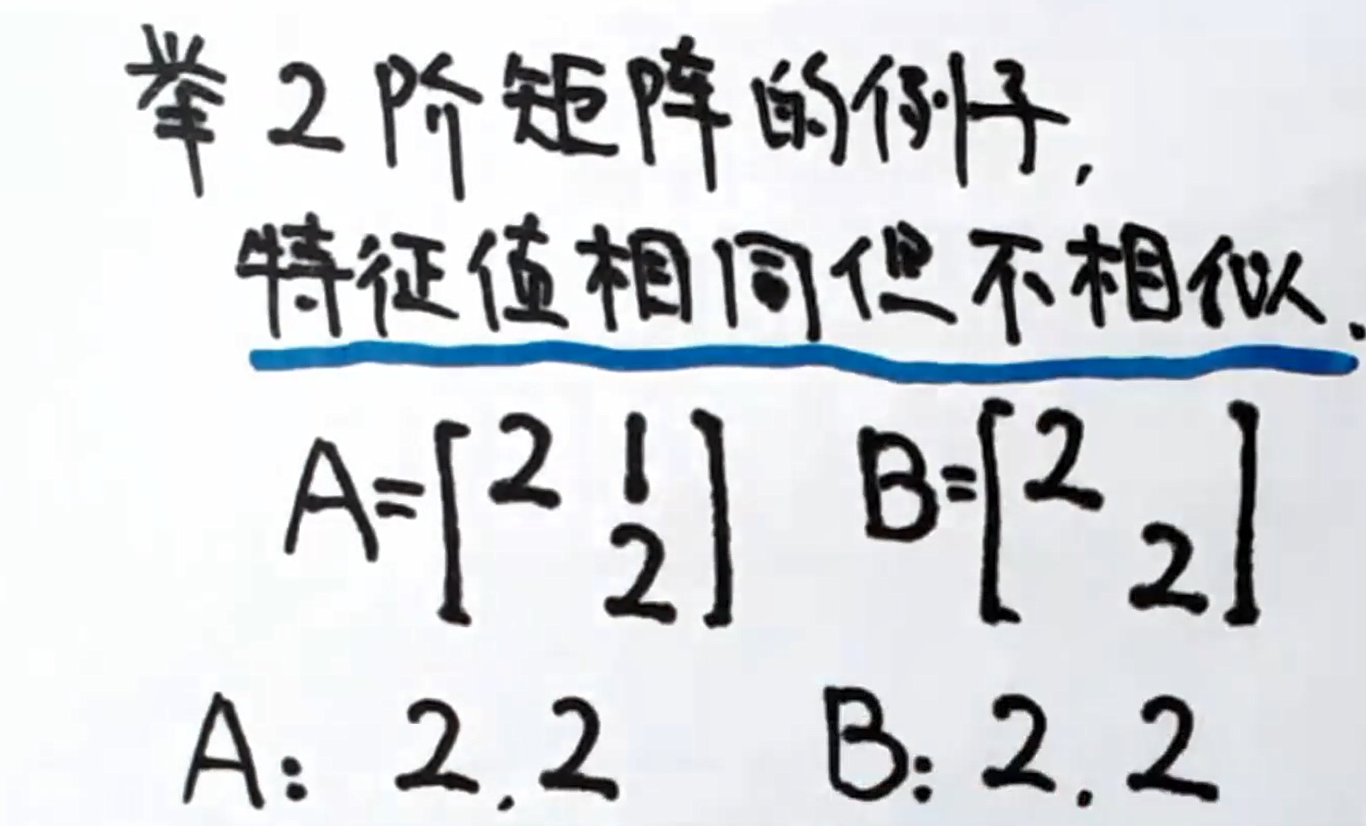 举2阶矩阵的例子,
特征值相同但不相似.
A=[2 1
2] B=[2
2]
A: 2.2 B: 2.2